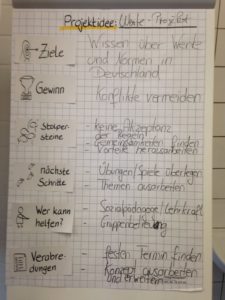 Projektidee: Werte-Projekt
Ziele
Wissen über Werte
und Normen in
Deutschland
Gewinn
Konflikte vermeiden
Stolper-
steine
- keine Akzeptanz
der Regeln
- Gemeinsamkeiten finden
- Vorteile herausarbeiten
nächste
Schritte
- Übungen/Spiele überlegen
- Themen ausarbeiten
Wer kann
helfen?
- Sozialpädagoge/Lehrkraft
- Gruppenbe
Verabre-
dungen
- festen Termin finden
- Konzept ausarbeiten
und erweitern